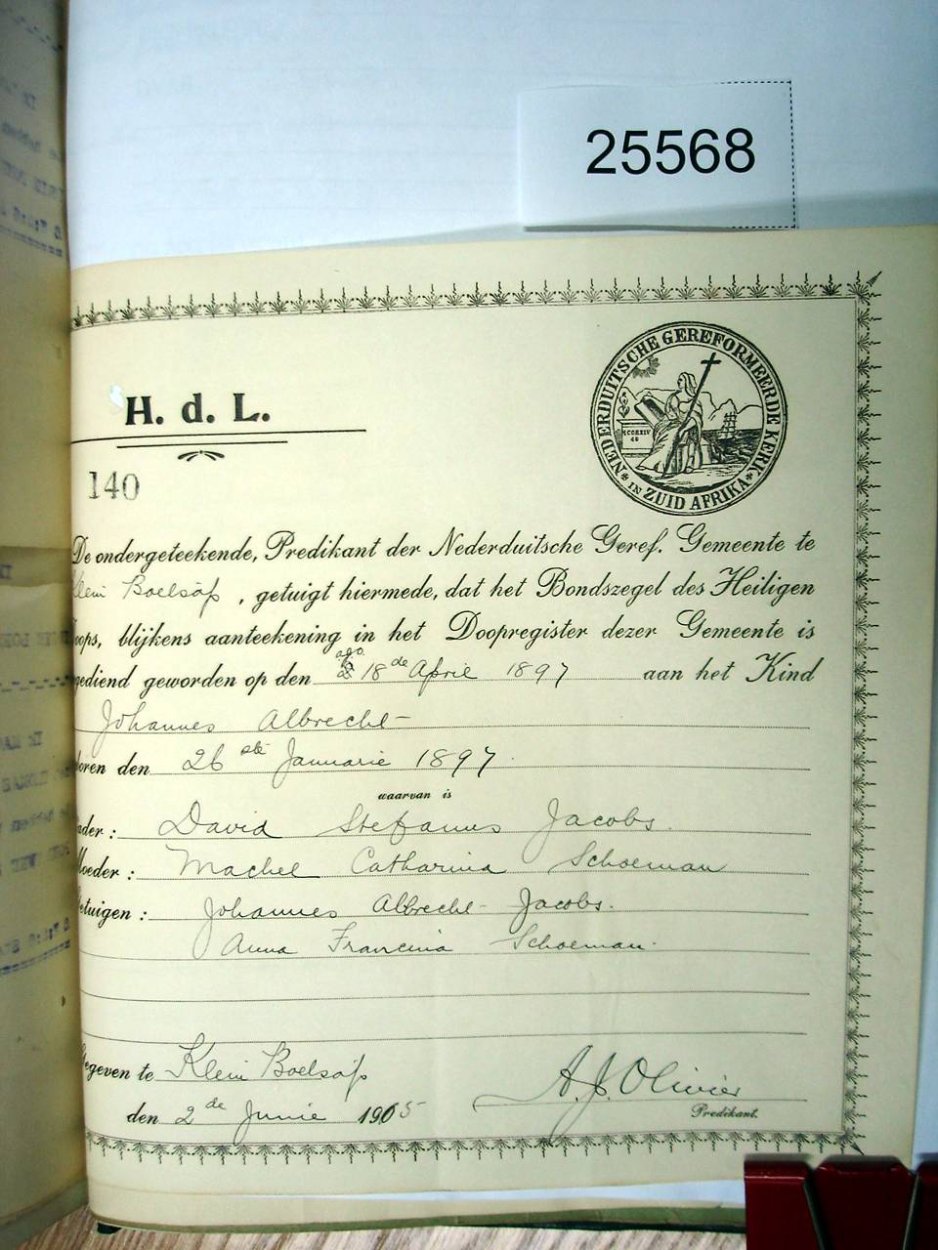 25568
NEDERDUITSCHE GEREFORMEERDE KERK
IN ZUID AFRIKA
H. d. L.
140
De ondergeteekende, Predikant der Nederduitsche Geref. Gemeente te
Klein Boetsap, getuigt hiermede, dat het Bondszegel des Heiligen
oops, blijkens aanteekening in het Doopregister dezer Gemeente is
gediend geworden op den 18de April 1897 aan het Kind
Johannes Albrecht
oren den 26ste Januarie 1897
waarvan is
ader: David Stefanus Jacobs.
oeder: Machel Catharina Schoeman
etuigen: Johannes Albrecht Jacobs.
Anna Francina Schoeman.
Gegeven te Klein Boetsap
den 2de Junie 1905
A. J. Olivier
Predikant.